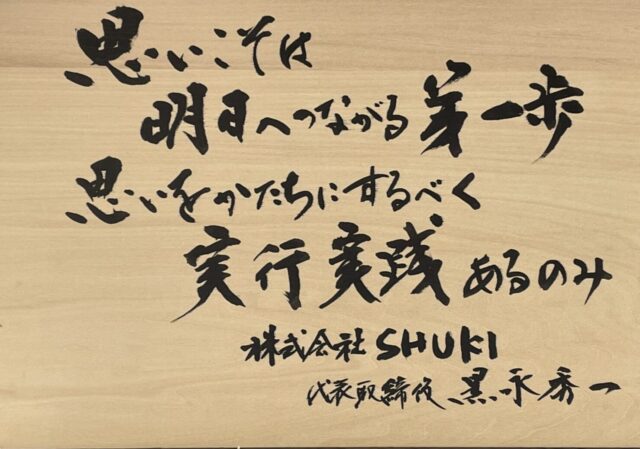 思いこそは
明日へつながる第一歩
思いをかたちにするべく
実行実践あるのみ
株式会社SHUKI
代表取締役 黒永秀一